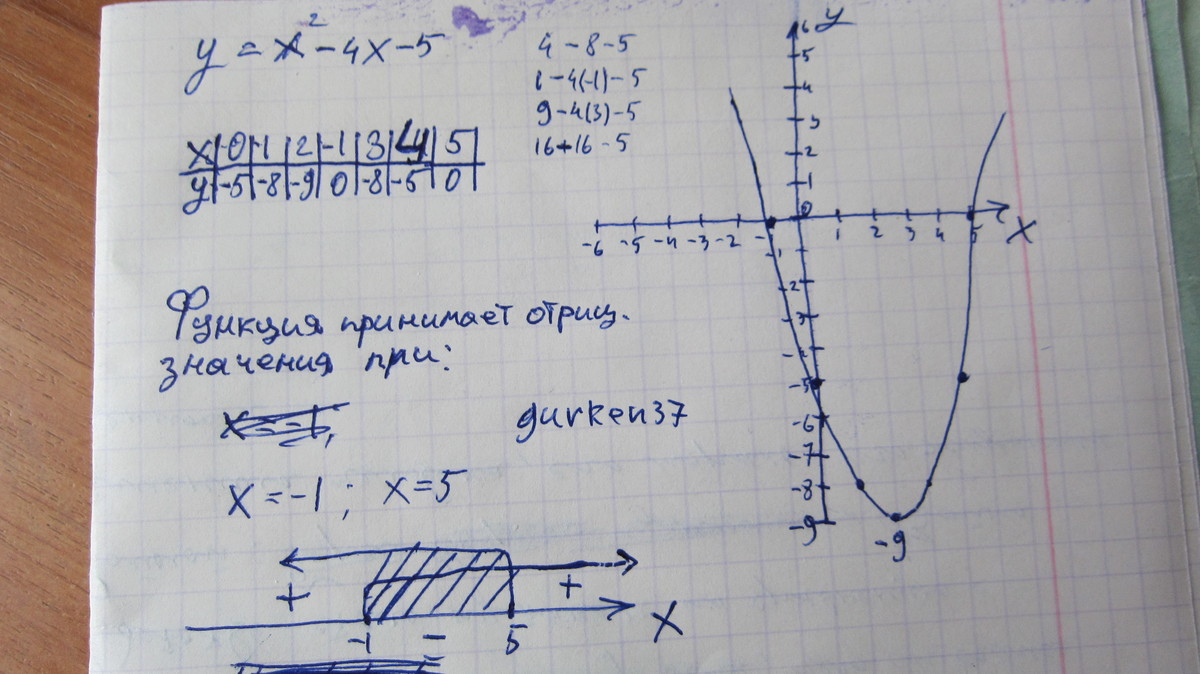 y = x² - 4x - 5
4 - 8 - 5
1 - 4(-1) - 5
9 - 4(3) - 5
16 + 16 - 5
x | 0 | 1 | 2 | -1 | 3 | 4 | 5
y | -5 | -8 | -9 | 0 | -8 | -5 | 0
Функция принимает отриц.
значения при:
x = -1,
gurken37
x = -1 ; x = 5
+ +
-1 - 5 X
y
6
5
4
3
2
1
0
-6 -5 -4 -3 -2 -1 1 2 3 4 5 X
-1
-2
-3
-5
-6
-7
-8
-9
-9